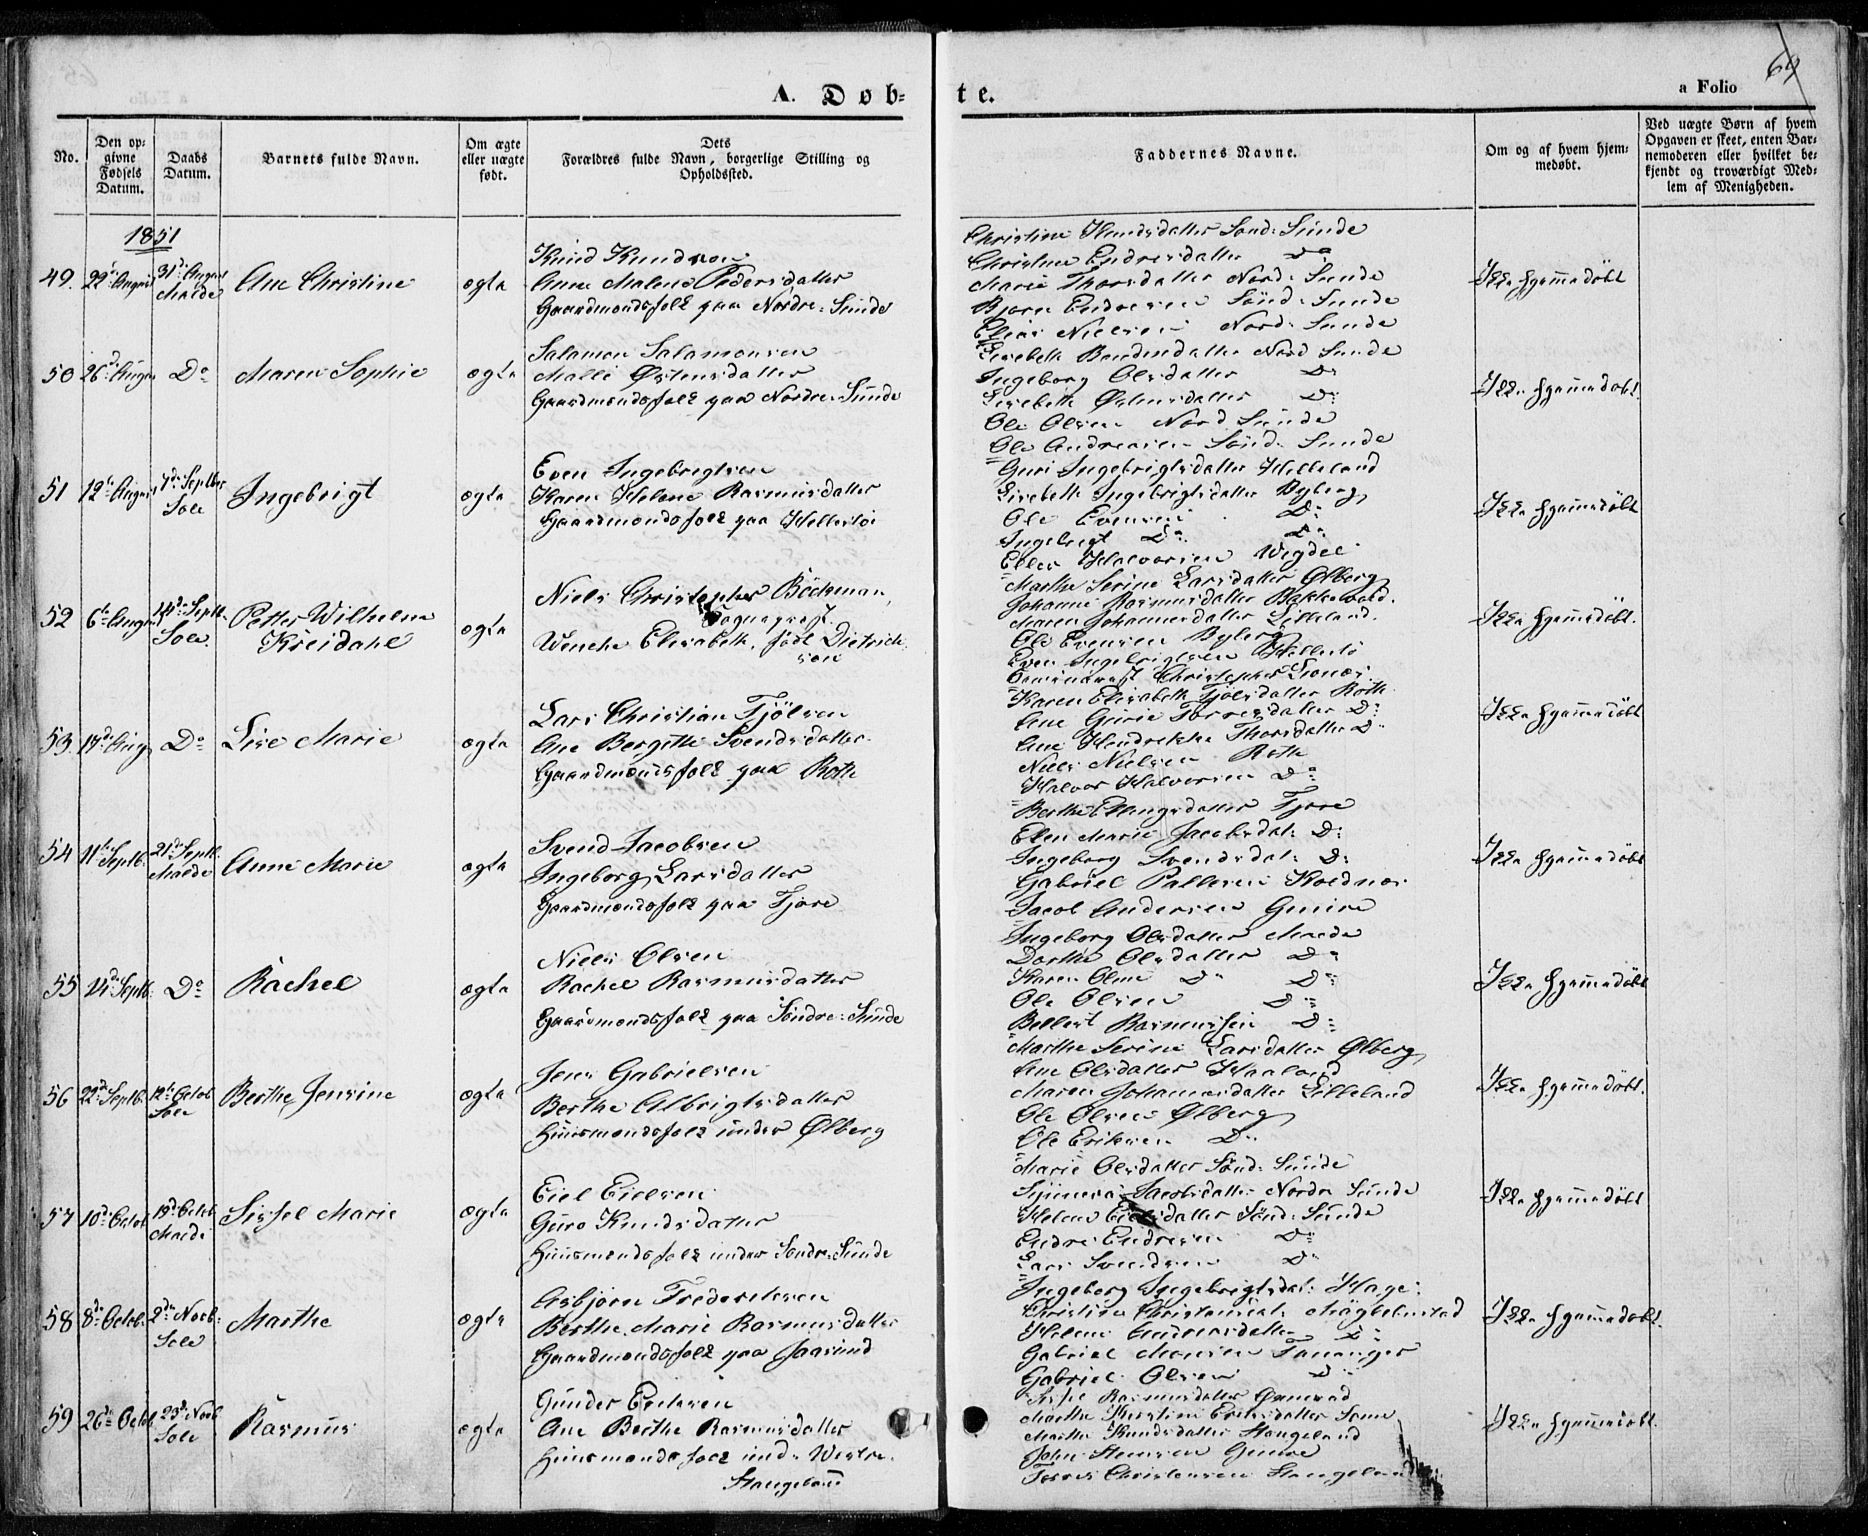 A. Døb-
te.
a Folio 69
No.
Den opgivne Fødsels Datum.
Daabs Datum.
Barnets fulde Navn.
Om ægte eller uægte født.
Dets Forældres fulde Navn, borgerlige Stilling og Opholdssted.
Faddernes Navne.
Om og af hvem hjemmedøbt.
Ved uægte Børn af hvem Opgaven er skeet, enten Barnemoderen eller hvilket bekjendt og troværdigt Medlem af Menigheden.
1851
49. 22de August 31te August Malde Ane Christine ægte
Knud Knudson
Anne Malene Pedersdatter
Gaardmandsfolk paa Nordre-Sunde
Christine Knudsdatter Sønd: Sunde
Christine Endresdatter Do
Marie Thorsdatter Nord: Sunde
Bjørn Endresen Sønd: Sunde
Elias Nielsen Nord: Sunde
Ikke hjemmedøbt
50 26de August Do Maren Sophie ægte
Salamon Salamonsen
Malli Østensdatter
Gaardmandsfolk paa Nordre-Sunde
Lisebeth Bendixdatter Nord Sunde
Ingeborg Olsdatter Do
Lisebeth Østensdatter Do
Ole Olsen Nord Sunde
Ole Andreasen Sønd: Sunde
Ikke hjemmedøbt.
51 12te August 7de Septber Sole Ingebrigt ægte
Even Ingebrigtsen
Karen Helene Rasmusdatter
Gaardmandsfolk paa Hellestø
Guri Ingebrigtsdatter Helleland
Lisebeth Ingebrigtsdatter Byberg
Ole Evensen Do
Ingebrigt Do Do
Eller Halvorsen Wigdel
Ikke hjemmedøbt
52 6te August 14de Septb. Sole. Petter Wilhelm Kreidahl ægte
Niels Christopher Bøckman,
Sognepræst.
Wenche Elisabeth, født Dietrichson
Marthe Serine Larsdatter Ølberg
Johanne Rasmusdatter Bakkevold.
Maren Johannesdatter Lilleland.
Ole Evensen Byberg
Even Ingebrigtsen Hellestø
Christopher
Ikke hjemmedøbt.
53 14de Aug Do Lise Marie ægte
Lars Christian Tjølsen
Ane Bergitte Svendsdatter
Gaardmandsfolk paa Roth
Karen Elisabeth Tjølsdatter Roth
Ane Gurie Torresdatter Do
Ane Hendrikke Thorsdatter Do
Niels Nielsen Roth
Halvor Halvorsen Do
Ikke hjemmedøbt
54 11te Septb. 21de Septb. Malde Anne Marie ægte
Svend Jacobsen
Ingeborg Larsdatter
Gaardmandsfolk paa Tjore
Berthe Ellingsdatter Tjore
Elen Marie Jacobsdat: Do:
Ingeborg Svendsdat: Do:
Gabriel Pallesen
Jacob Andersen Gimre
Ikke hjemmedøbt
55 14de Septb. Do Rachel ægte
Niels Olsen
Rachel Rasmusdatter
Gaardmandsfolk paa Søndre-Sunde
Ingeborg Olsdatter Malde
Dorthe Olsdatter Do
Karen Oline Do Do
Ole Olsen Do
Bellert Rasmussen Do
Ikke hjemmedøbt
56 22de Septb. 12te Octob. Sole Berthe Jensine ægte
Jens Gabrielsen
Berthe Albrigtsdatter
Huusmandsfolk under Ølberg
Marthe Serine Larsdatter Ølberg
Ane Olsdatter Haaland
Maren Johannesdatter Lilleland
Ole Olsen Ølberg
Ole Eriksen Do
Ikke hjemmedøbt.
57 10de Octob. 19de Octob. Malde Sissel Marie ægte
Eiel Eielsen
Guro Knudsdatter
Huusmandsfolk under Søndre-Sunde
Marie Olsdatter Sønd: Sunde
Synneva Jacobsdatter Nordre Sunde
Helene Eielsdatter Sønd: Sunde
Endre Endresen Do
Lars Svendsen Do
Ikke hjemmedøbt
58 8de Octob. 2de Novb: Sole Marthe ægte
Asbjørn Frederiksen
Berthe Marie Rasmusdatter
Gaardmandsfolk paa Jaasund
Ingeborg Ingebrigtsdat: Hage:
Christine Christensdat:
Helene Andreasdatter Do
Gabriel Monsen Tananger
Gabriel Olsen Do
Ikke hjemmedøbt.
59 26de Octob 23de Novb Sole Rasmus ægte
Gunder Eriksen
Ane Berthe Rasmusdatter
Huusmandsfolk und. Westre-
Stangeland
Rasmusdatter
Marthe Kirstine Eriksdatter Sømme
Marthe Knudsdatter Stangeland
John Gimre
Torres Christensen Stangeland
Ikke hjemmedøbt.